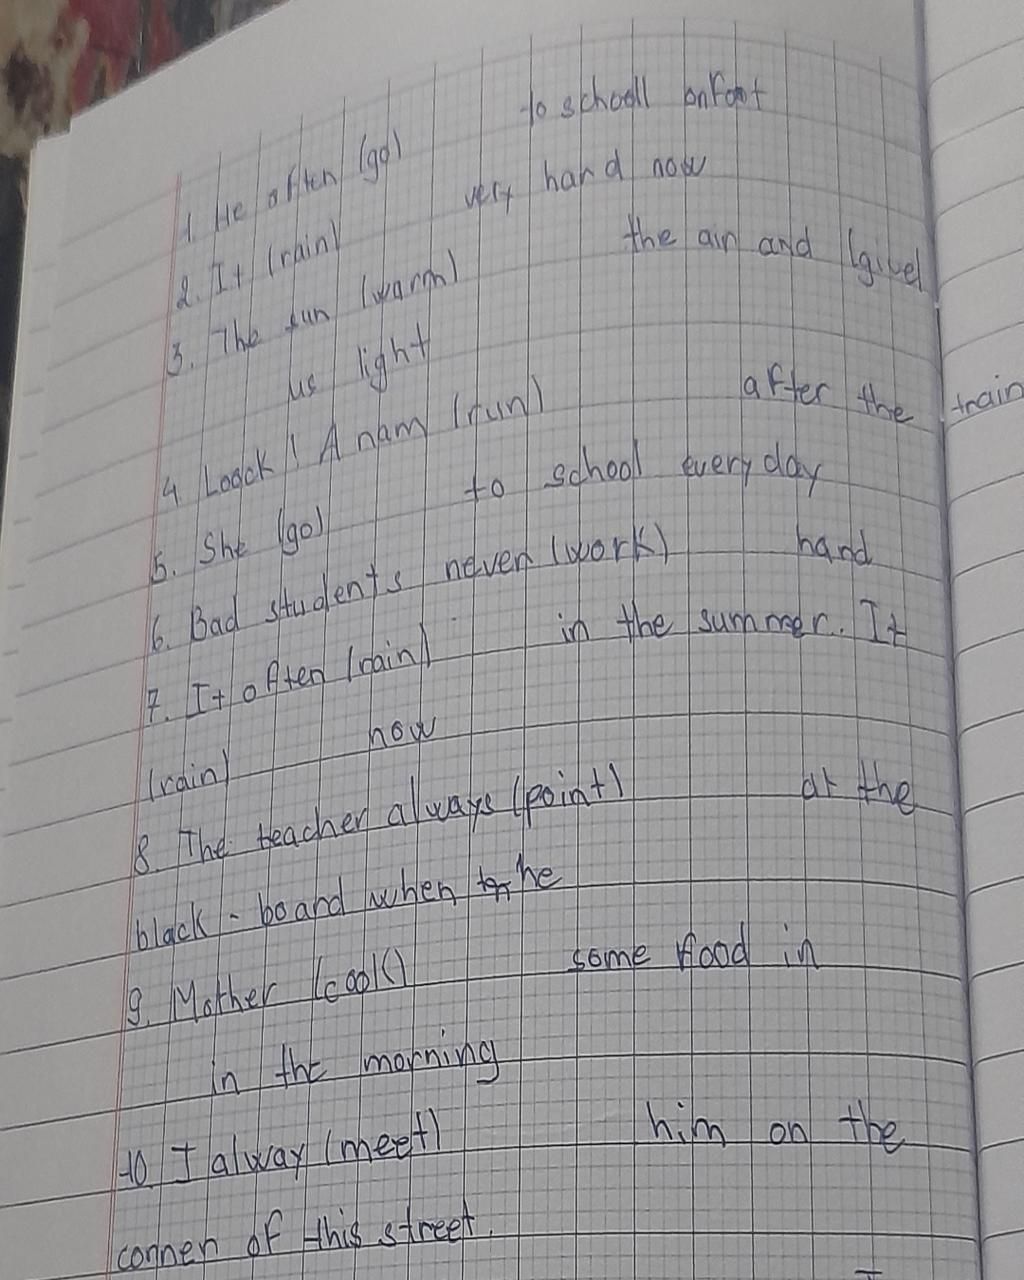 1 He often (go) to schooll onfoot
2. It (rain) very hand now
3. The sun (warm) the air and (give)
us light
4 Loock! A nam (run) after the train
5. She (go) to school every day
6. Bad students never (work) hand
7. It often (rain) in the summer. It
(rain) now
8. The teacher always (point) at the
black - board when he
9. Mother (cook) some food in
in the morning
10 I alway (meet) him on the
connen of this street.